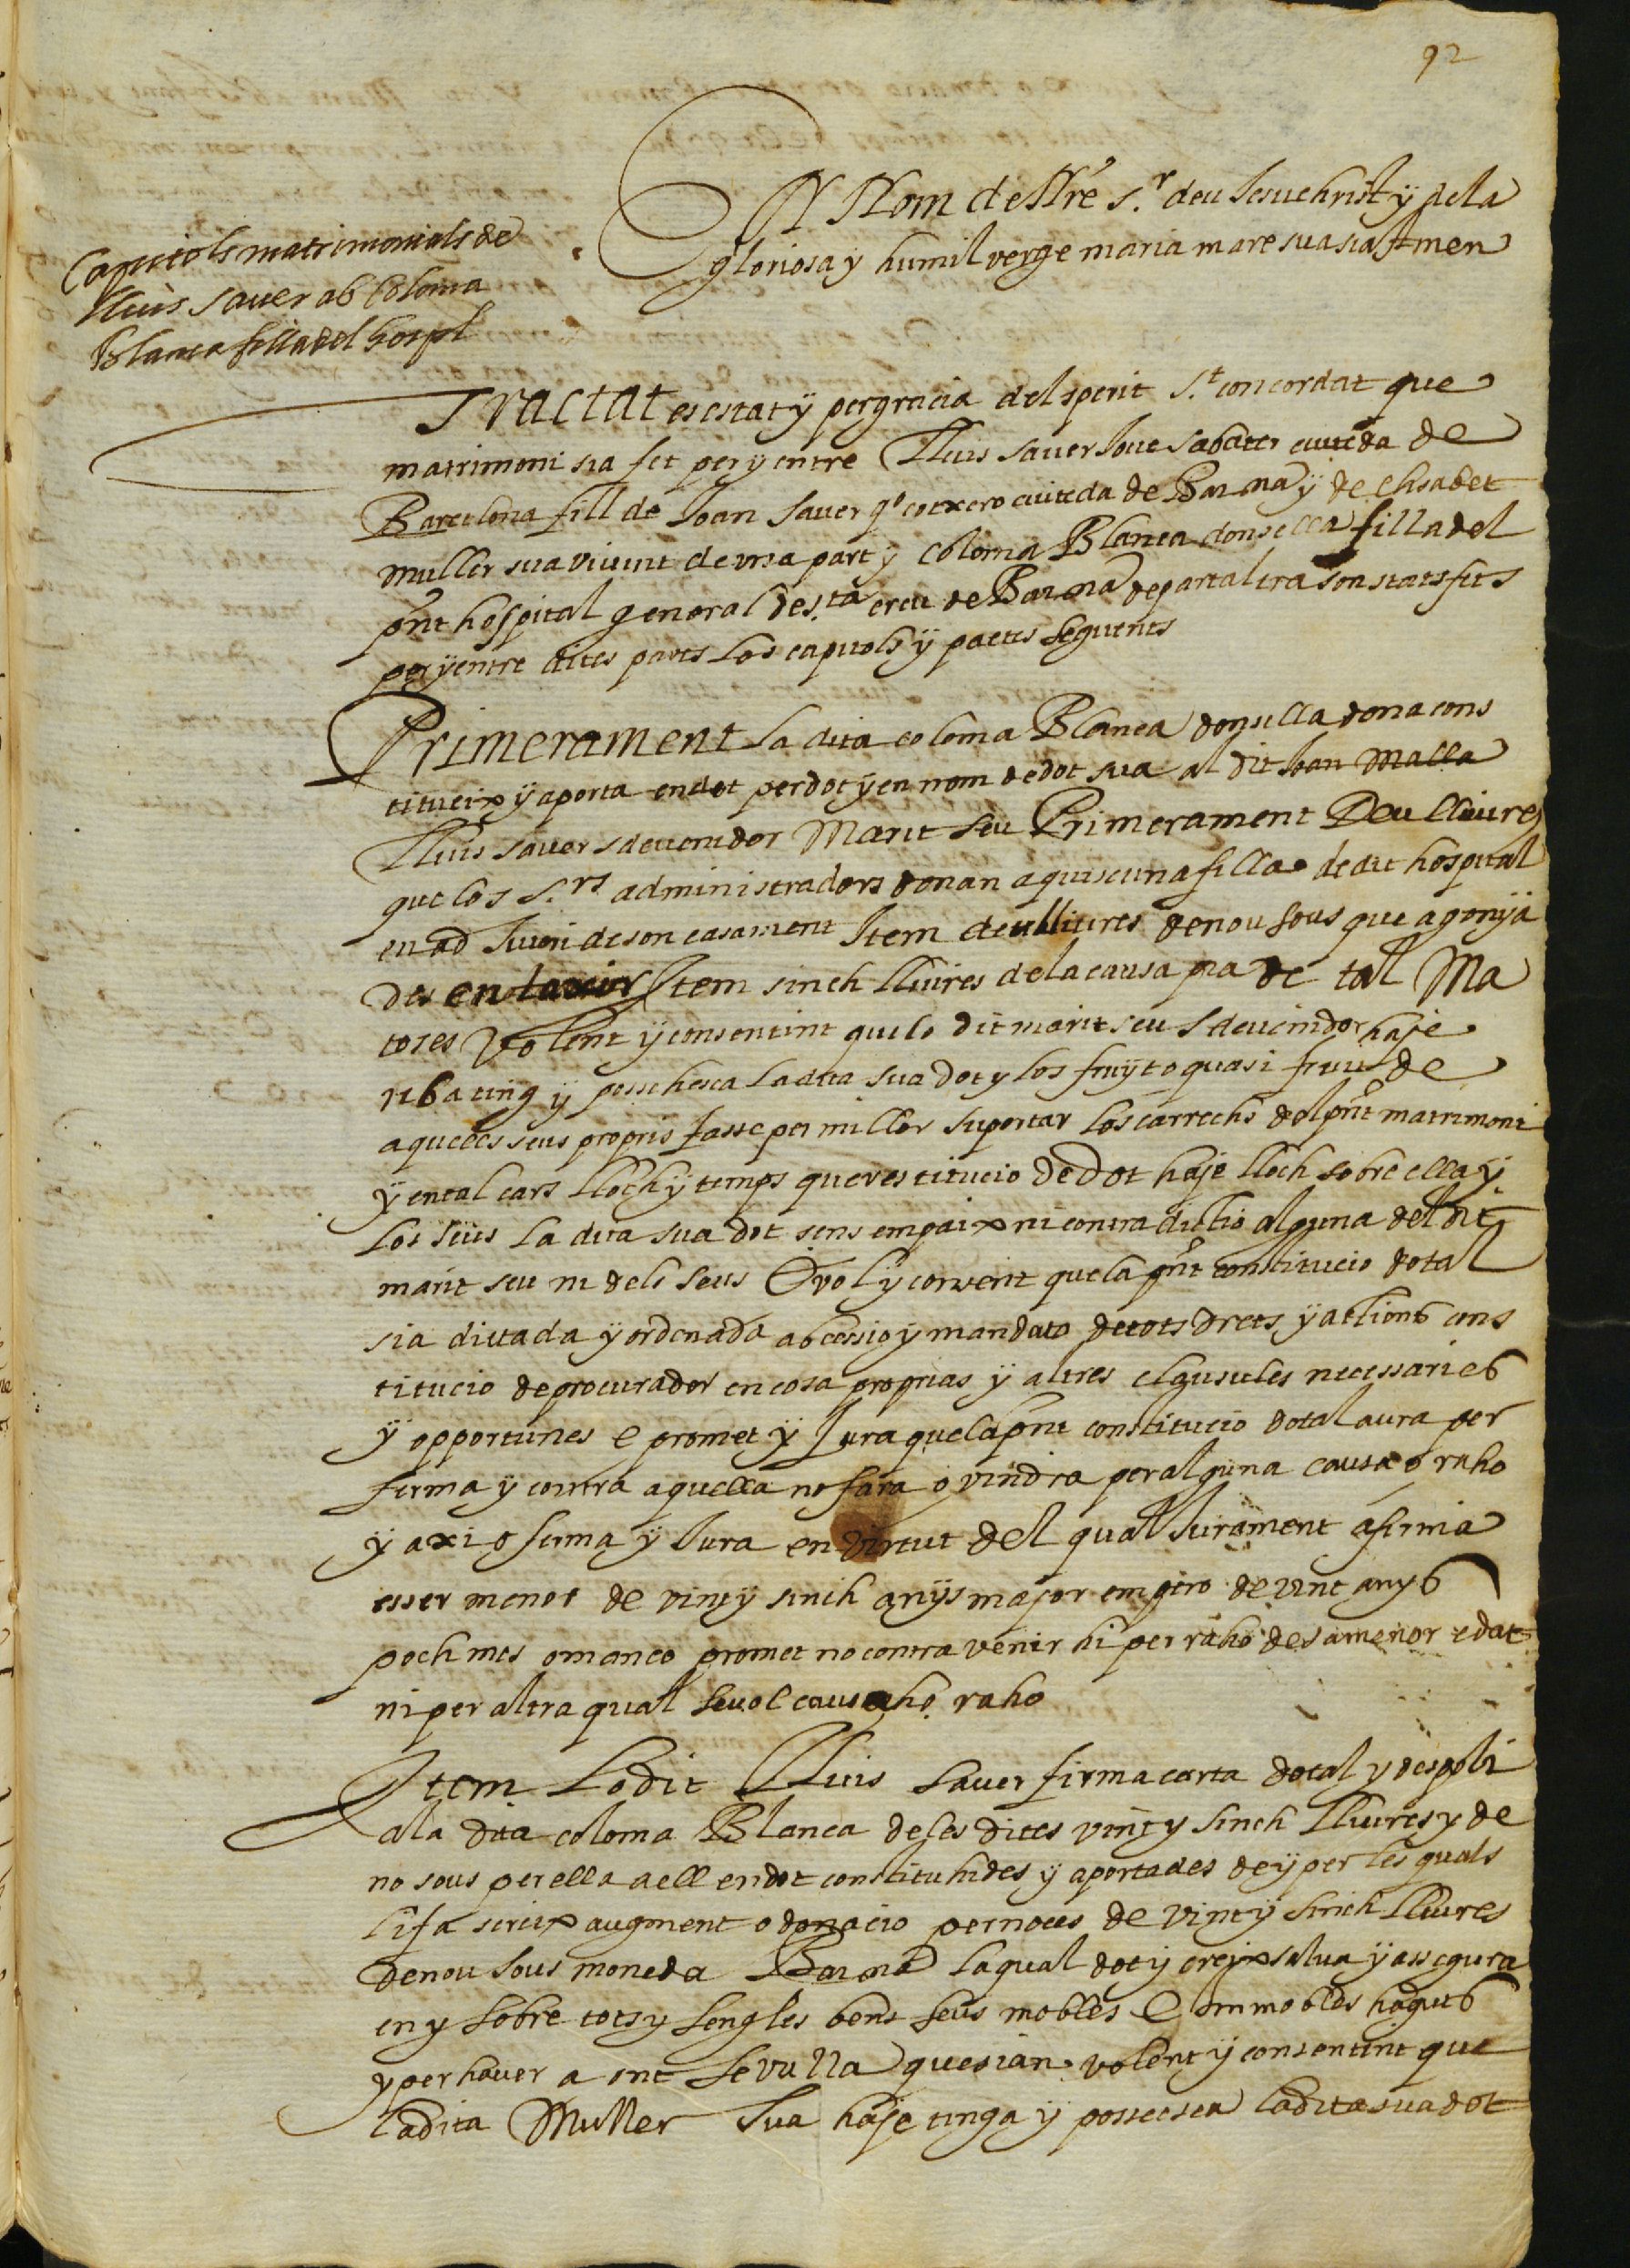 92
EN Nom de Nre S.r deu Jesuchrist y dela
gloriosa y humil verge maria mare sua sia Amen
Capitols matrimonials de
Lluis Sauer ab Coloma
Blanca filla del hospl
Tractat es estat y per gracia del sperit S.t concordat que
matrimoni sia fet per y entre Lluis Sauer Jove sabater ciuteda de
Barcelona fill de Joan Sauer q.o cotxero ciuteda de Barna y de Elisabet
muller sua vivint de una part y Coloma Blanca donsella filla del
pnt hospital general de s.ta creu de Barna de part altra son stats fets
per y entre dites parts los capitols y pactes seguents
Primerament la dita coloma Blanca donsella dona cons
titueix y aporta en dot per dot y en nom de dot sua al dit Joan Malla
Lluis Sauer sdevenidor Marit seu Primerament Deu lliures
que los S.rs administradors donan a quiscuna filla de dit hospital
en ad Juvori de son casament Item deu lliures denou sous que a gonya
des Item sinch lliures dela causa pia de tal Ma
tores Volent y consentint que lo dit marit seu sdevenidor haje
reba ting y possehesca la dita sua dot y los fruyt o quasi fruit de
aquelles seus propris fasse per miller suportar los carrechs del pnt matrimoni
y en tal cars lloch y temps que restitucio de dot haje lloch sobre ella y
los seus la dita sua dot sens empaix ni contradictio alguna del dit
marit seu ni dels seus E vol y consent que la pnt constitucio dotal
sia dictada y ordenada ab cessio y mandato de tots drets y actions cons
titucio de procurador en cosa proprias y altres clausules necessaries
y opportunes e promet y Jura que la pnt constitucio dotal aura per
ferma y contra aquella no fara o vindra per alguna causa o raho
y axi o ferma y Jura en virtut del qual Jurament afirma
esser menor de vint y sinch anys major empero de vint anys
poch mes o manco promet no contravenir hi per raho de sa menor edat
ni per altra qual seuol causa ho raho
Item Lo dit Lluis Sauer firma carta dotal y despoli
a la dita coloma Blanca de les dites vint y sinch lliures y de
no sous per ella a ell en dot constituhides y aportades de y per les quals
li fa screix augment o donacio per noces de vint y sinch lliures
denou sous moneda Barna la qual dot y creix salva y assegura
en y sobre tots y sengles bens seus mobles e Immobles haguts
y per hauer a ont se vulla que sian volent y consentint que
la dita Muller Sua haje tinga y possecsca la dita sua dot